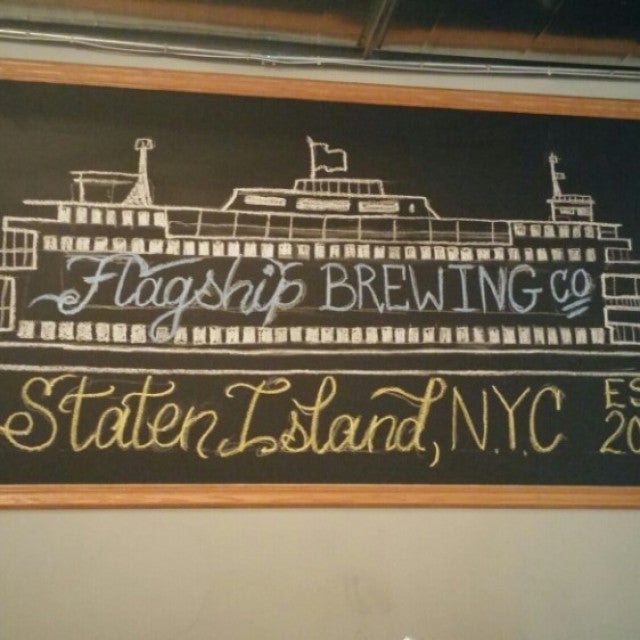 Flagship BREWING CO
Staten Island, N.Y.C